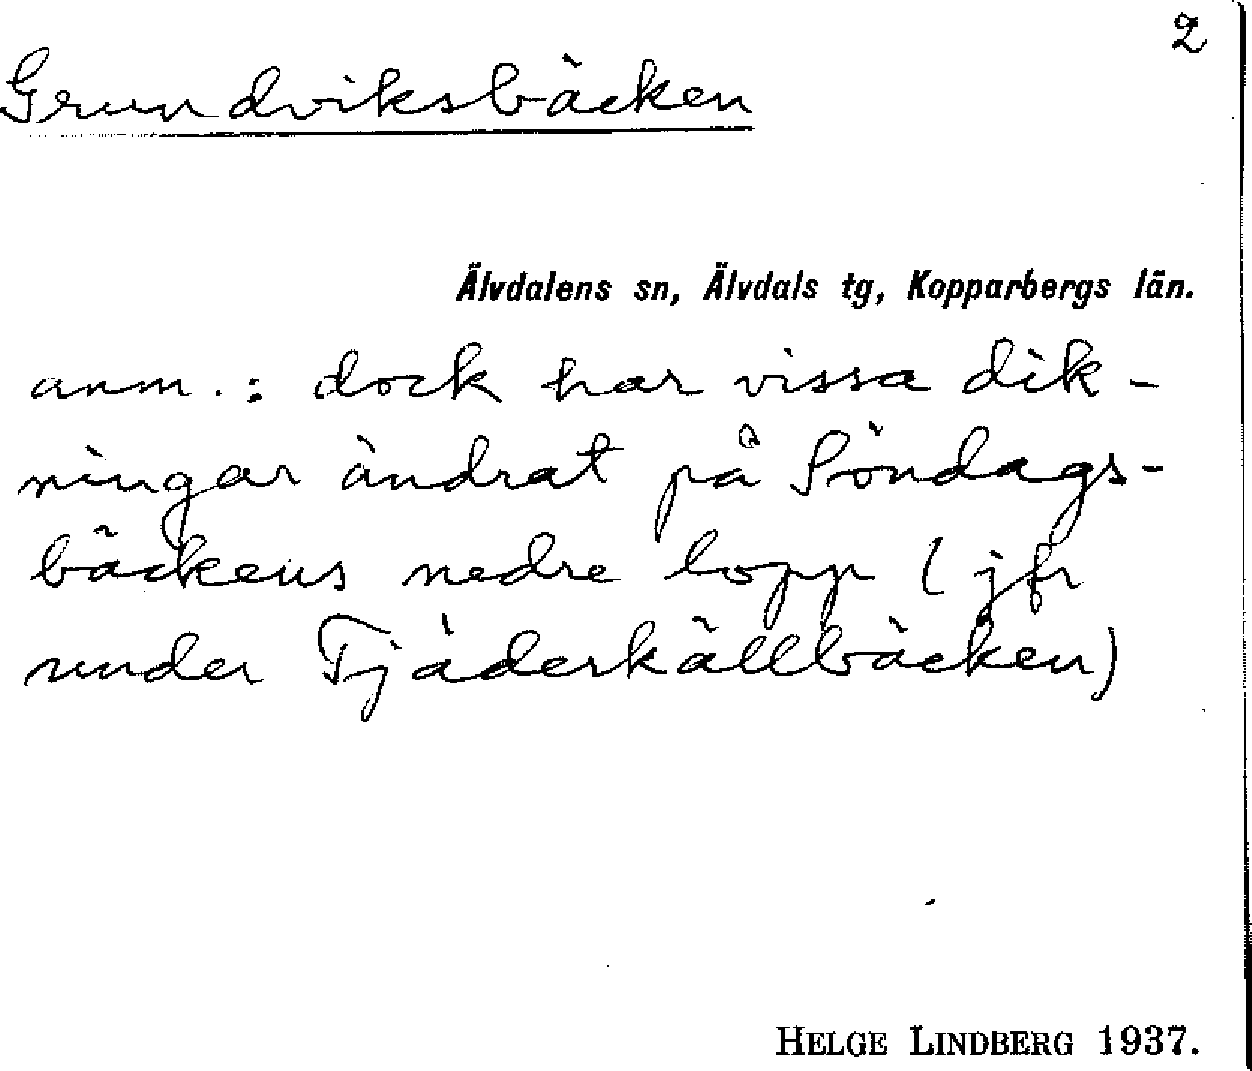 2
Grundviksbäcken
Älvdalens sn, Älvdals tg, Kopparbergs län.
anm.: dock har vissa dik-
ningar ändrat på Söndags-
bäckens nedre lopp (jfr
under Tjäderkällbäcken)
HELGE LINDBERG 1937.